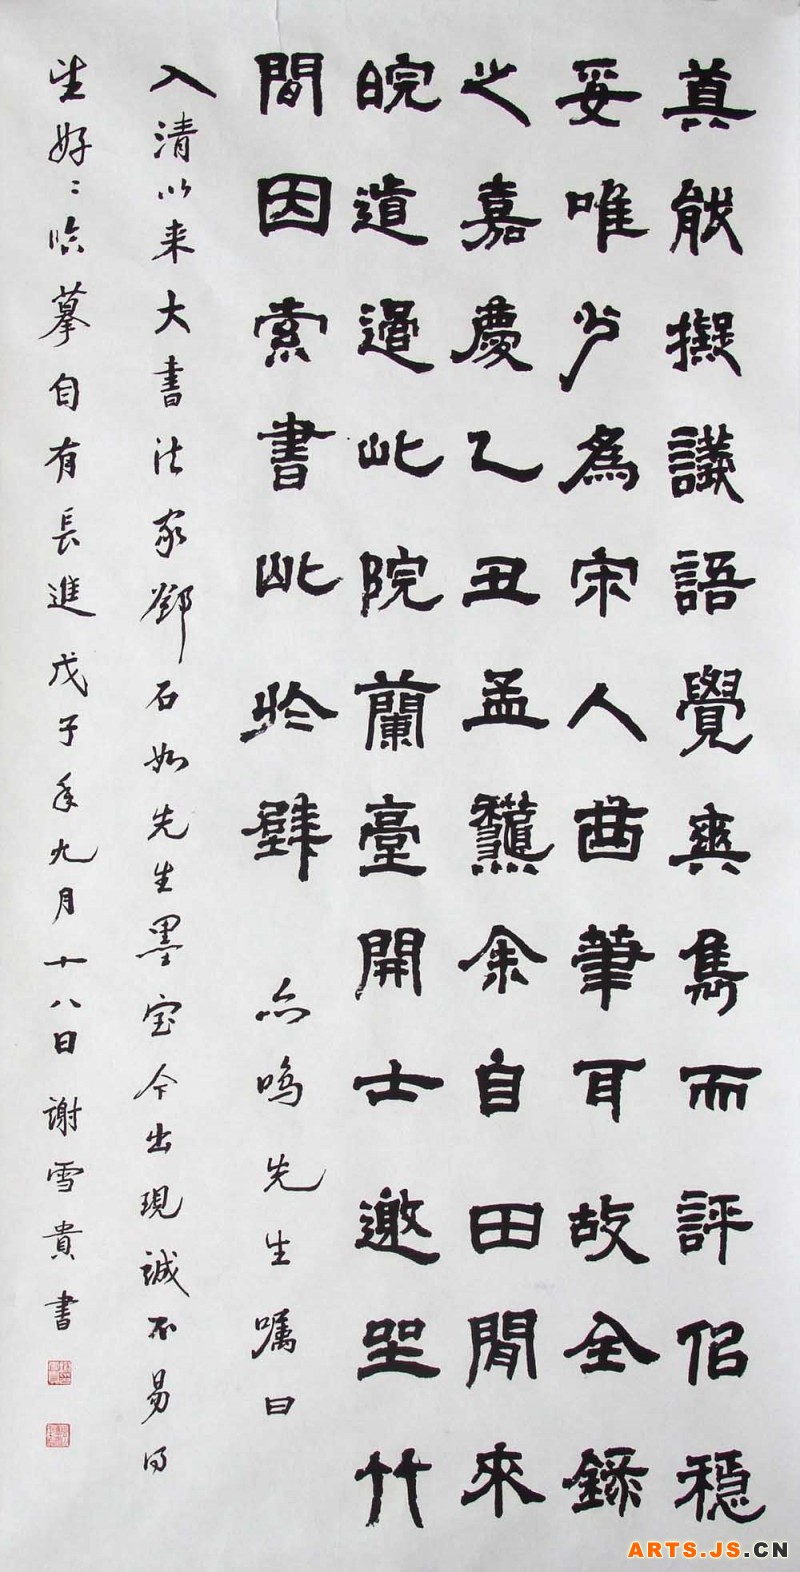 真能擬議語覺爽雋而評侶穩
妥唯少為宋人酋筆耳故全錄
之嘉慶乙丑孟龝余自田閒來
皖道過此院蘭臺開士邀坐竹
間因索書此於壁 亦鳴先生囑曰
入清以来大書法家鄧石如先生墨宝今出現誠不易得
望好々临摹自有長進戊子年九月十八日謝雪貴書
ARTS.JS.CN